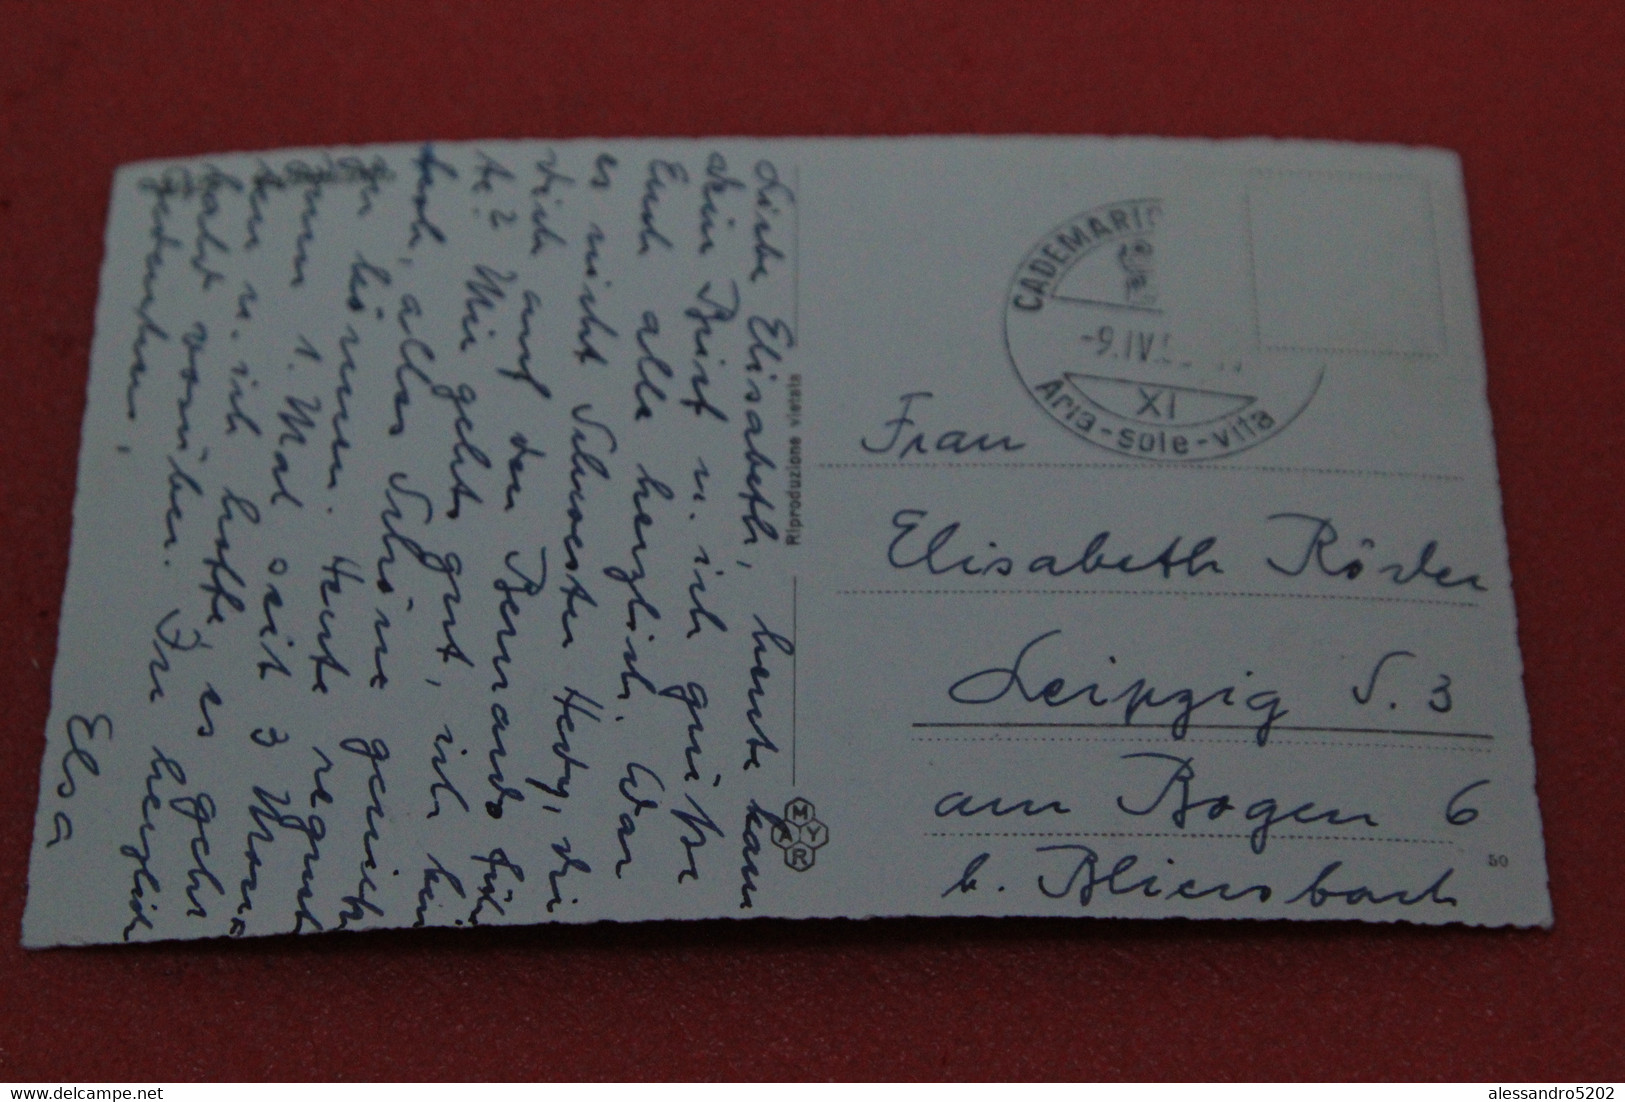 Liebe Elisabeth, heute kam
dein Brief u. ich grüße
Euch alle herzlich. War
es nicht Schwester Hedy, die
dich auf den Bernardo
te? Mir gehts gut, ich bin
froh, alles Schöne
zu können. Heute regnet
zum 1. Mal seit 3
u. ich hoffe, es geht
bald vorüber. In herzlich
Gedenken,
Elsa
Riproduzione vietata
MYR
CADEMARIO
-9.IV.
XI
Aria-sole-vita
Frau
Elisabeth Röder
Leipzig S. 3
am Bogen 6
50
alessandro5202